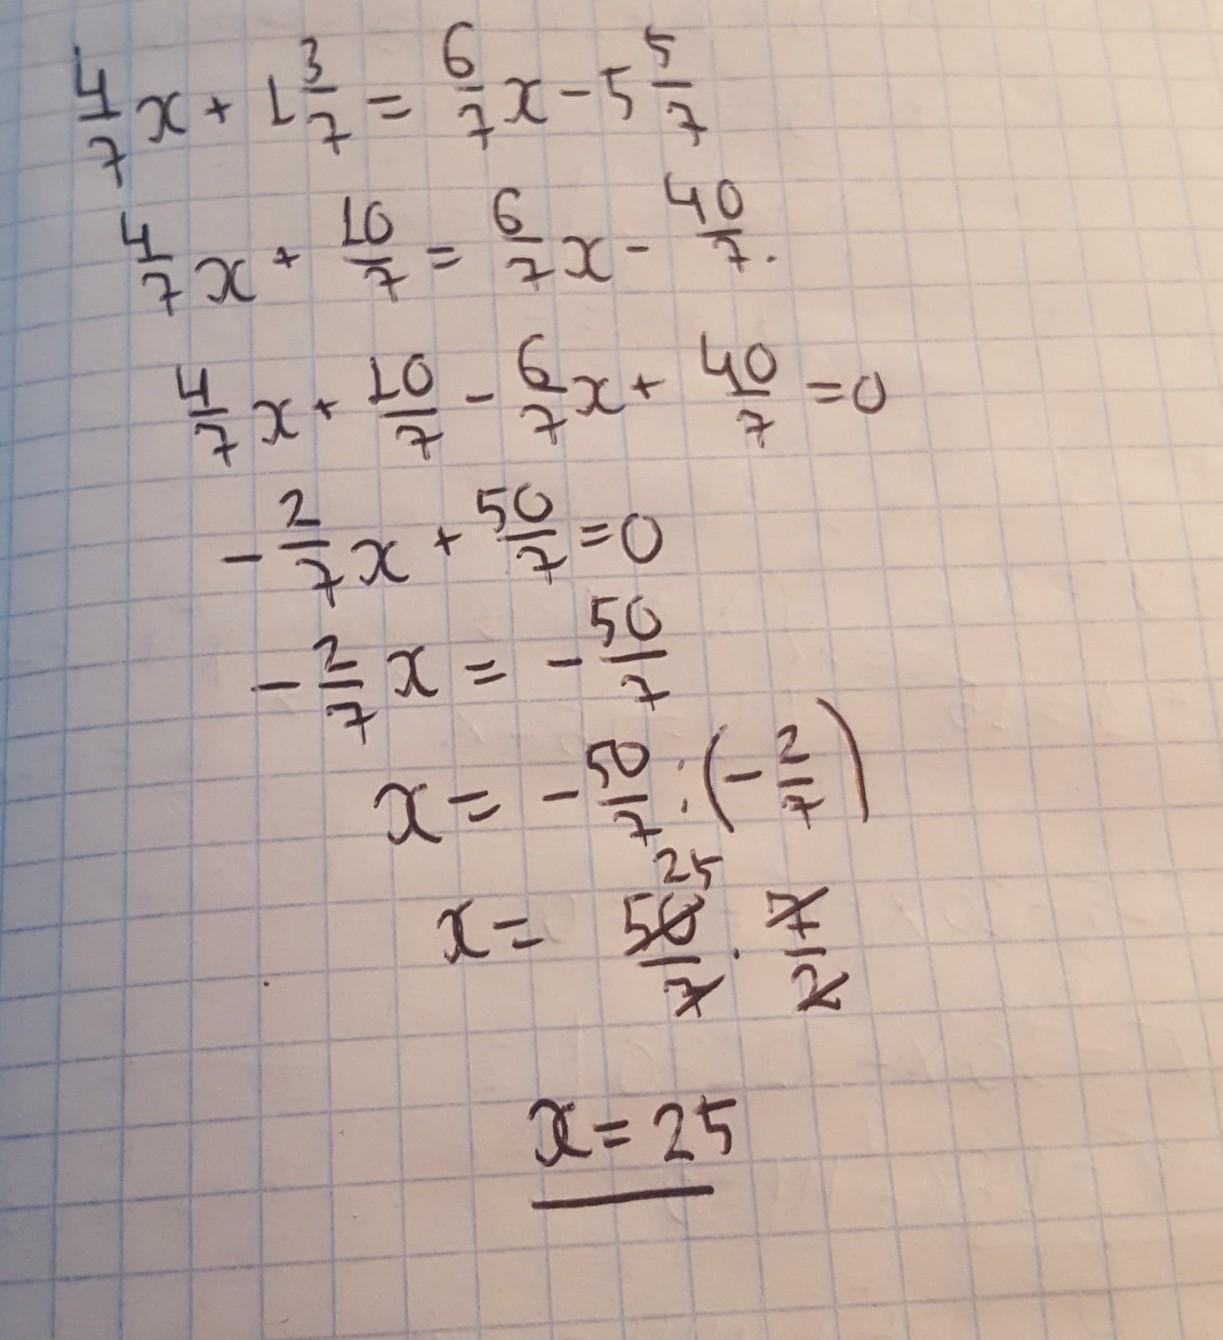 4/7 x + 1 3/7 = 6/7 x - 5 5/7
4/7 x + 10/7 = 6/7 x - 40/7.
4/7 x + 10/7 - 6/7 x + 40/7 = 0
- 2/7 x + 50/7 = 0
- 2/7 x = - 50/7
x = - 50/7 : (- 2/7)
25
x = 50/7 · 7/2
x = 25